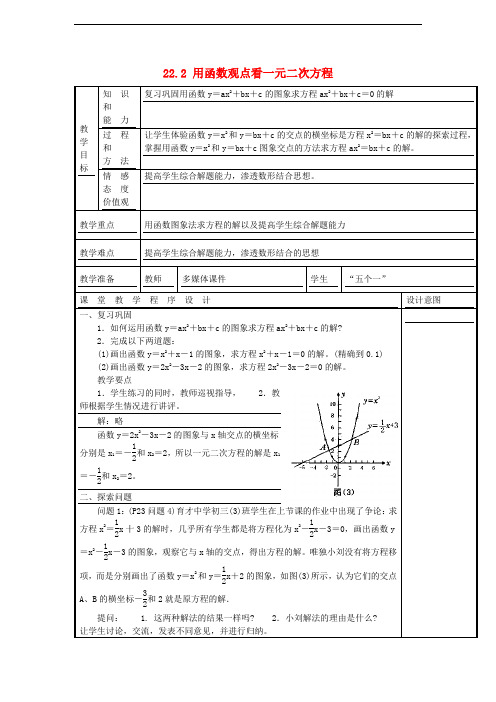 22.2 用函数观点看一元二次方程
教学目标
知 识
和
能 力
复习巩固用函数y＝ax²＋bx＋c的图象求方程ax²＋bx＋c＝0的解
过 程
和
方 法
让学生体验函数y＝x²和y＝bx＋c的交点的横坐标是方程x²＝bx＋c的解的探索过程，
掌握用函数y＝x²和y＝bx＋c图象交点的方法求方程ax²＝bx＋c的解。
情 感
态 度
价值观
提高学生综合解题能力，渗透数形结合思想。
教学重点
用函数图象法求方程的解以及提高学生综合解题能力
教学难点
提高学生综合解题能力，渗透数形结合的思想
教学准备 教师 多媒体课件 学生 “五个一”
课 堂 教 学 程 序 设 计 设计意图
一、复习巩固
1．如何运用函数y＝ax²＋bx＋c的图象求方程ax²＋bx＋c的解?
2．完成以下两道题：
(1)画出函数y＝x²＋x－1的图象，求方程x²＋x－1＝0的解。(精确到0.1)
(2)画出函数y＝2x²－3x－2的图象，求方程2x²－3x－2＝0的解。
教学要点
1．学生练习的同时，教师巡视指导， 2．教
师根据学生情况进行讲评。
解：略
函数y＝2x²－3x－2的图象与x轴交点的横坐标
分别是x₁＝－1/2和x₂＝2，所以一元二次方程的解是x₁
＝－1/2和x₂＝2。
y
y=x²
y=1/2x+3
10
8
6
4
2
A
B
-6 -4 -2 0 2 4 6 x
图(3)
二、探索问题
问题1：(P23问题4)育才中学初三(3)班学生在上节课的作业中出现了争论：求
方程x²＝1/2x十3的解时，几乎所有学生都是将方程化为x²－1/2x－3＝0，画出函数y
＝x²－1/2x－3的图象，观察它与x轴的交点，得出方程的解。唯独小刘没有将方程移
项，而是分别画出了函数y＝x²和y＝1/2x＋2的图象，如图(3)所示，认为它们的交点
A、B的横坐标－3/2和2就是原方程的解．
提问： 1. 这两种解法的结果一样吗? 2．小刘解法的理由是什么?
让学生讨论，交流，发表不同意见，并进行归纳。